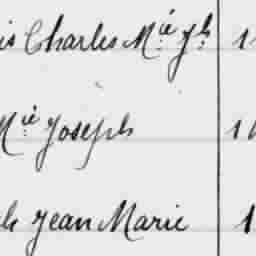 is Charles M.ie J.h 1
M.ie Joseph 1
h Jean Marie 1